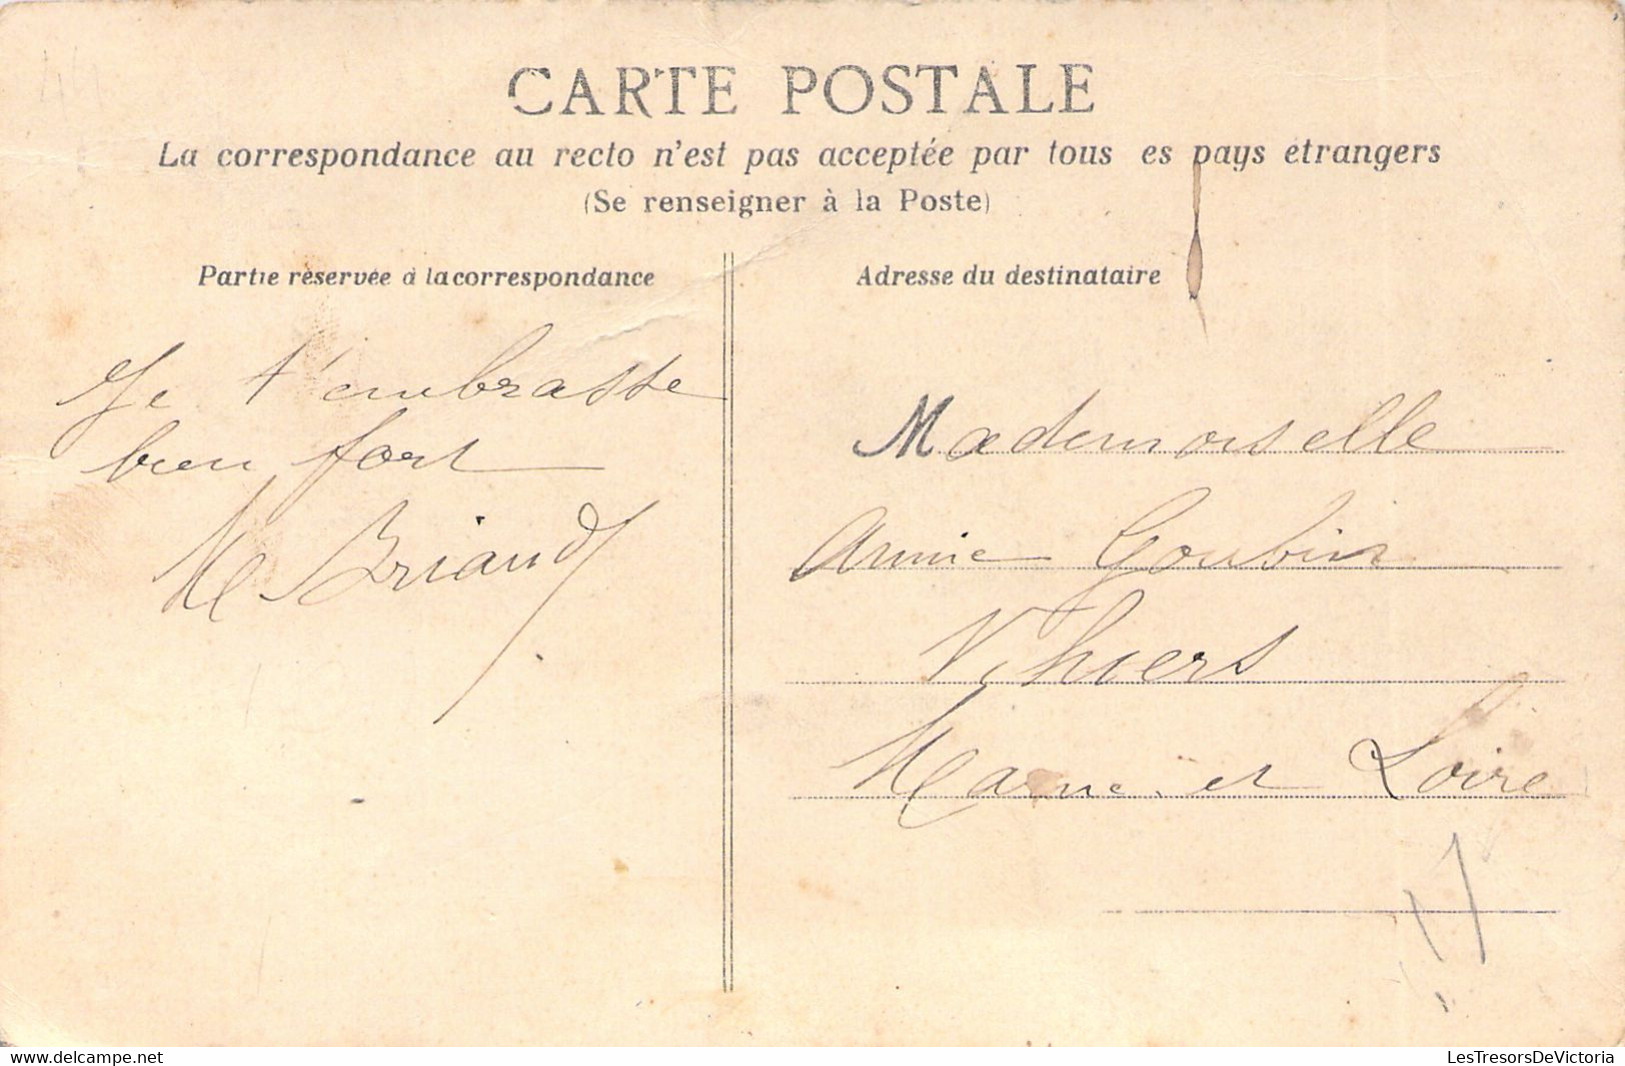 CARTE POSTALE
La correspondance au recto n'est pas acceptée par tous es pays étrangers
(Se renseigner à la Poste)
Partie réservée à la correspondance
Je t'embrasse
bien fort
M Briand
Adresse du destinataire
Mademoiselle
Annie Goubin
Vihiers
Maine et Loire
www.delcampe.net
LesTresorsDeVictoria